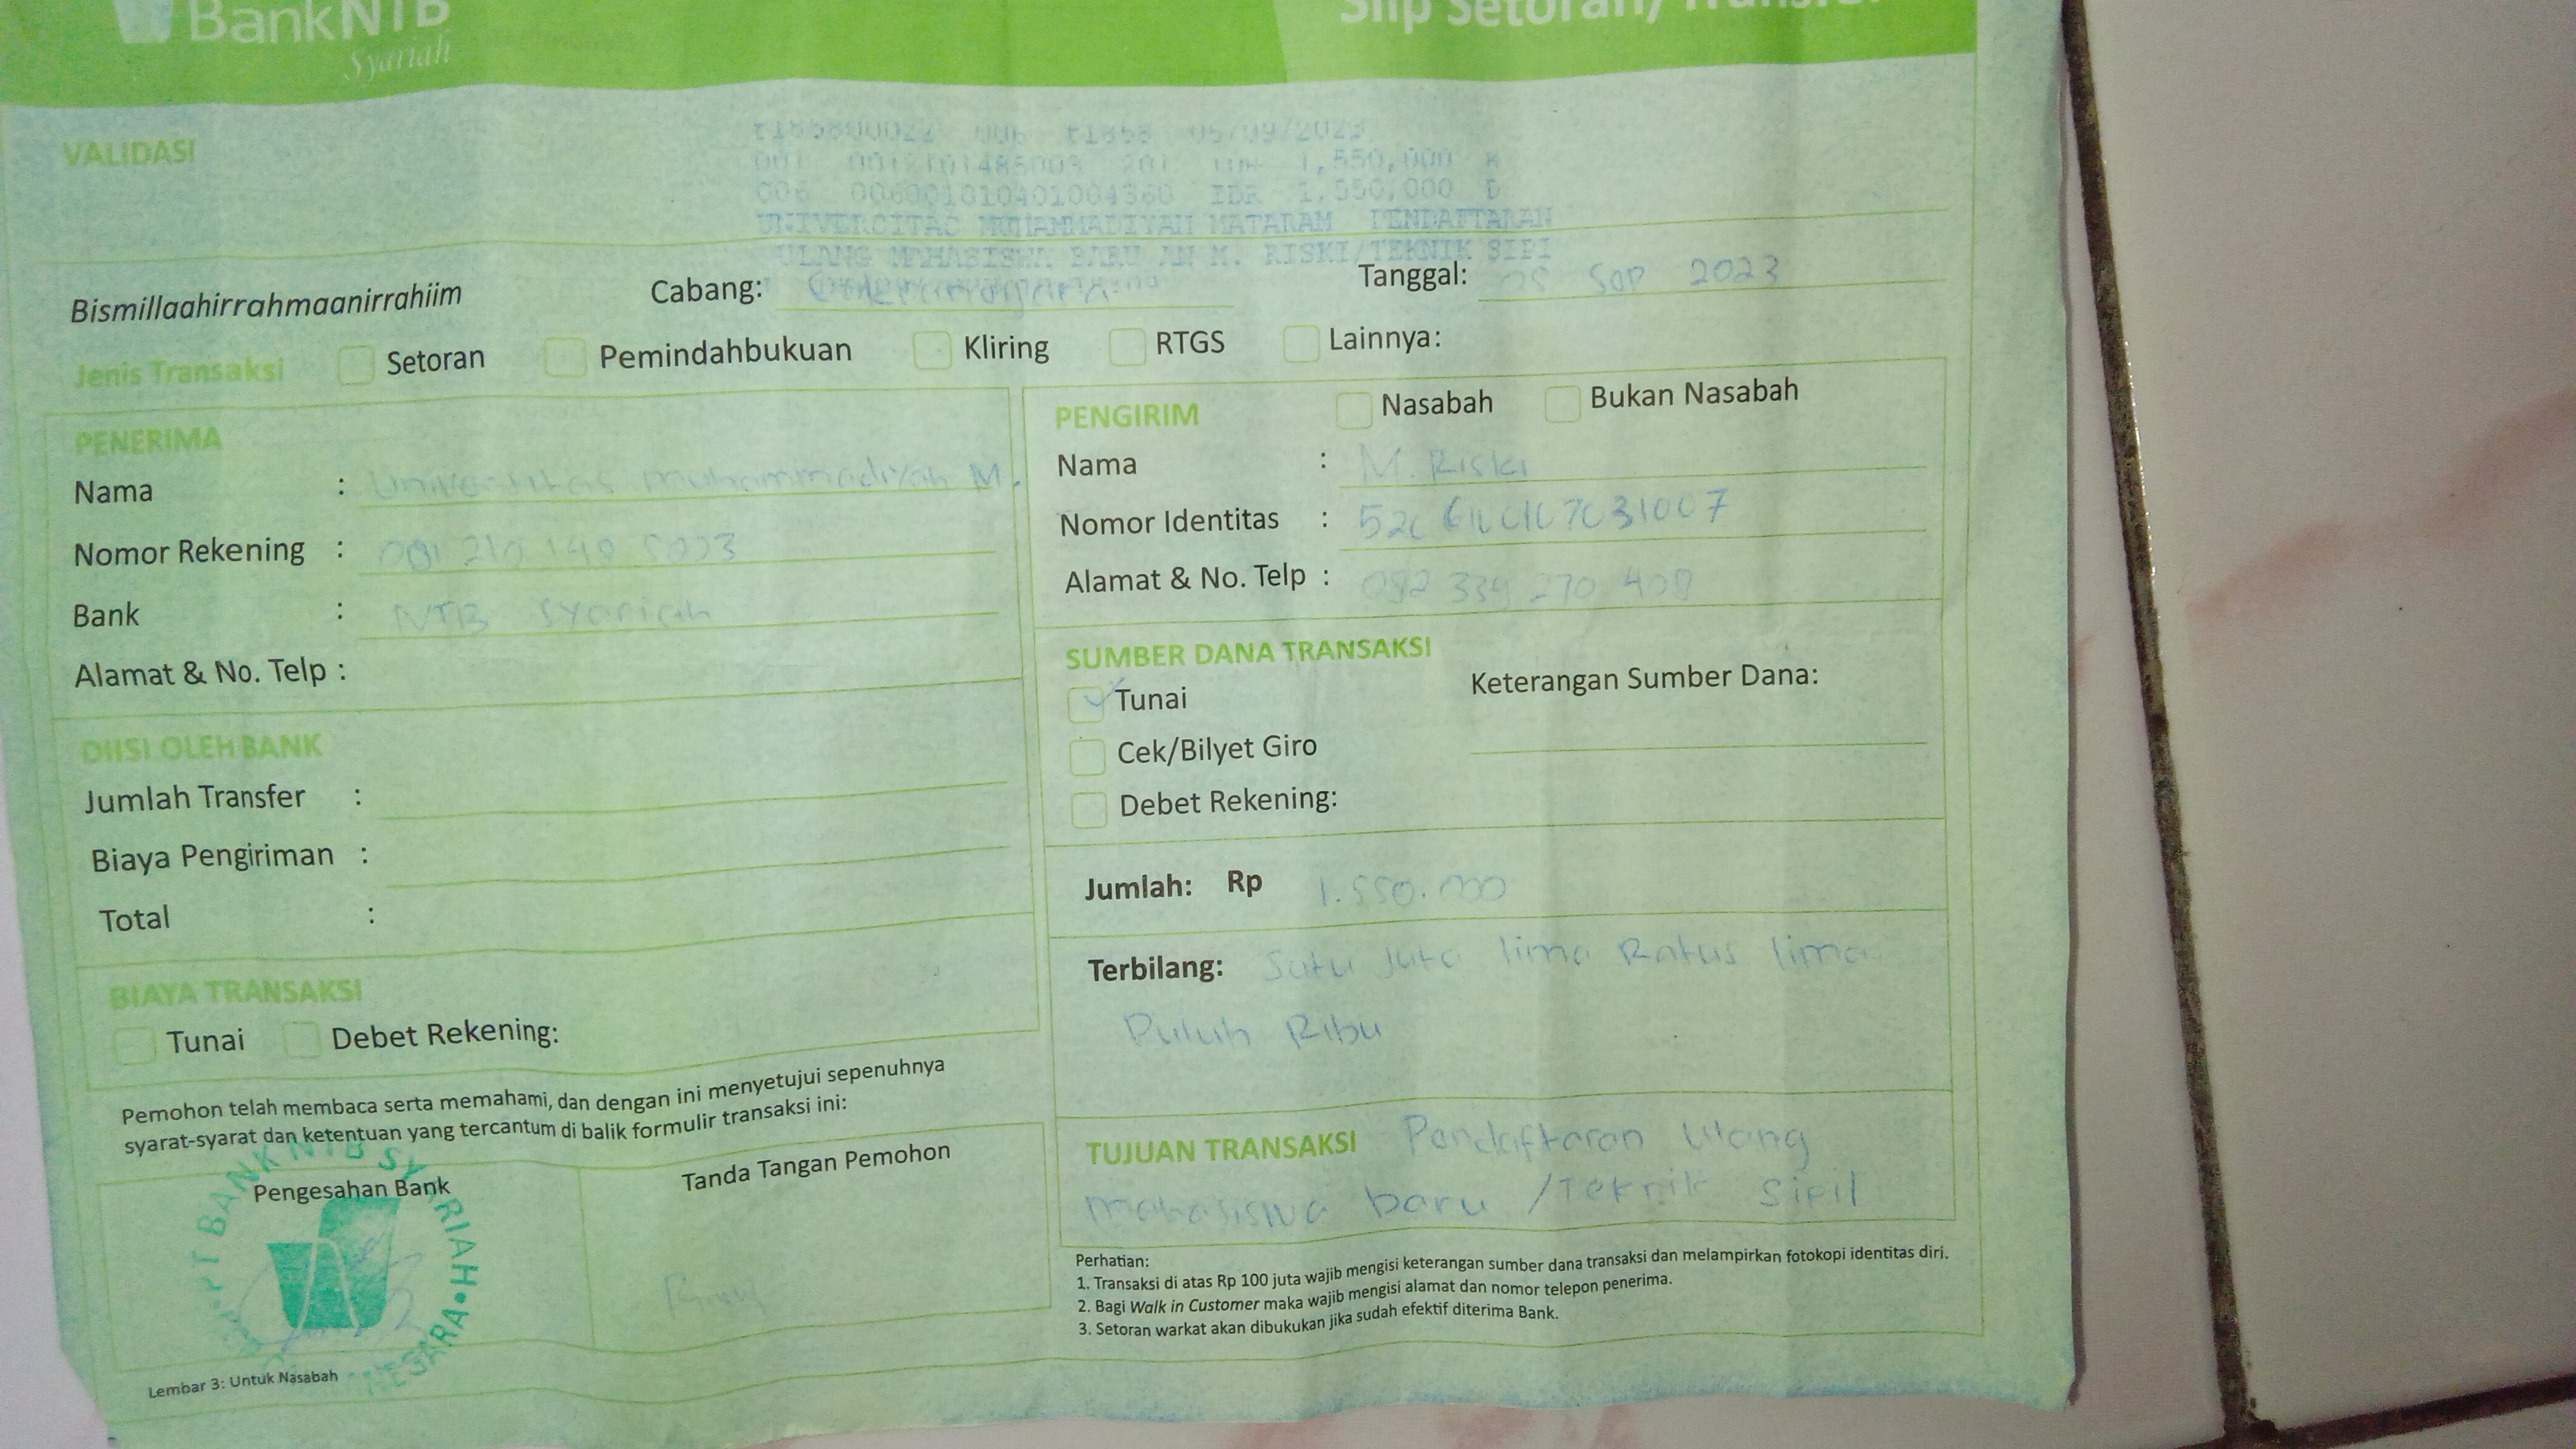 BankNTB
Syariah
Slip Setoran/Transfer
VALIDASI
05/09/2023
1,550,000
006 006001010401004360 IDR 1,550,000 D
UNIVERSITAS MUHAMMADIYAH MATARAM PENDAFTARAN
ULANG MAHASISWA BARU AN M. RISKI/TEKNIK SIPI
Bismillaahirrahmaanirrahiim
Cabang:
Tanggal: Sep 2023
Jenis Transaksi
Setoran
Pemindahbukuan
Kliring
RTGS
Lainnya:
PENERIMA
Nama : Universitas muhammadiyah M.
Nomor Rekening :
Bank : NTB Syariah
Alamat & No. Telp :
DIISI OLEH BANK
Jumlah Transfer :
Biaya Pengiriman :
Total :
BIAYA TRANSAKSI
Tunai
Debet Rekening:
Pemohon telah membaca serta memahami, dan dengan ini menyetujui sepenuhnya
syarat-syarat dan ketentuan yang tercantum di balik formulir transaksi ini:
Pengesahan Bank
PT BANK NTB SYARIAH
Tanda Tangan Pemohon
Lembar 3: Untuk Nasabah
PENGIRIM
Nasabah
Bukan Nasabah
Nama : M. Riski
Nomor Identitas :
Alamat & No. Telp : 082 339 270 408
SUMBER DANA TRANSAKSI
Tunai
Cek/Bilyet Giro
Debet Rekening:
Keterangan Sumber Dana:
Jumlah: Rp 1.550.000
Terbilang: Satu Juta lima Ratus lima
Puluh Ribu
TUJUAN TRANSAKSI Pendaftaran Ulang
mahasiswa baru /Teknik Sipil
Perhatian:
1. Transaksi di atas Rp 100 juta wajib mengisi keterangan sumber dana transaksi dan melampirkan fotokopi identitas diri.
2. Bagi Walk in Customer maka wajib mengisi alamat dan nomor telepon penerima.
3. Setoran warkat akan dibukukan jika sudah efektif diterima Bank.